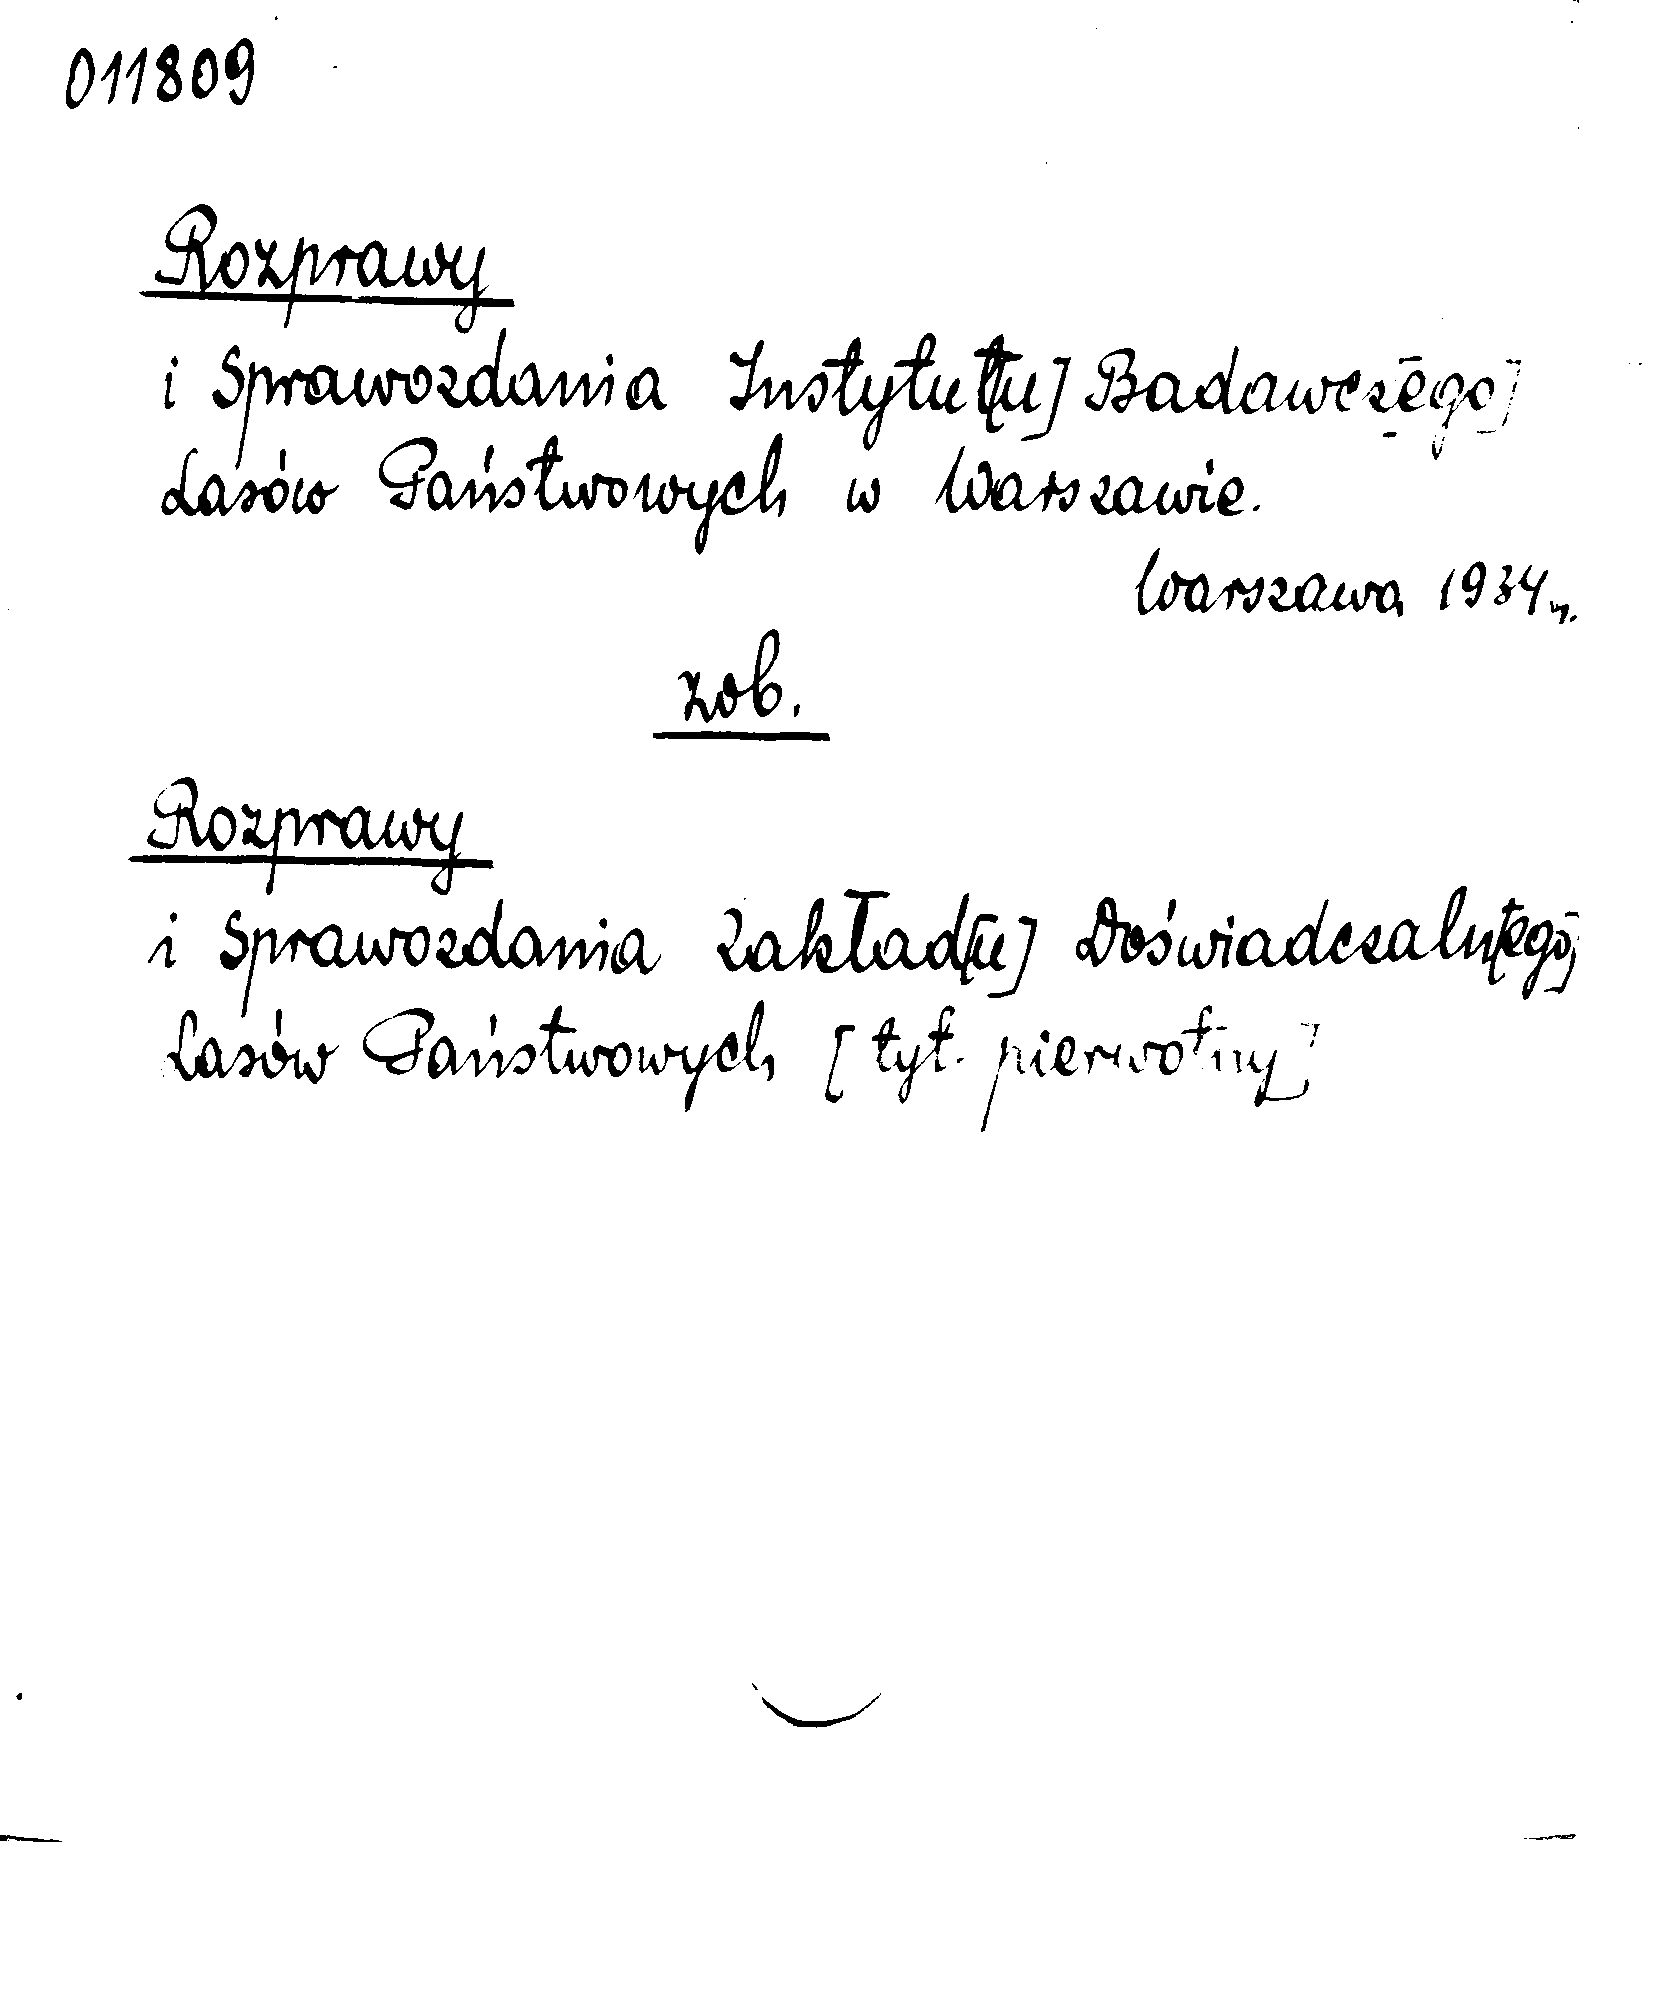 011809
Rozprawy
i Sprawozdania Instytut[u] Badawcz[ego]
Lasów Państwowych w Warszawie.
Warszawa 1934 n.
zob.
Rozprawy
i Sprawozdania Zakład[u] Doświadczaln[ego]
Lasów Państwowych [tyt. pierwotny]